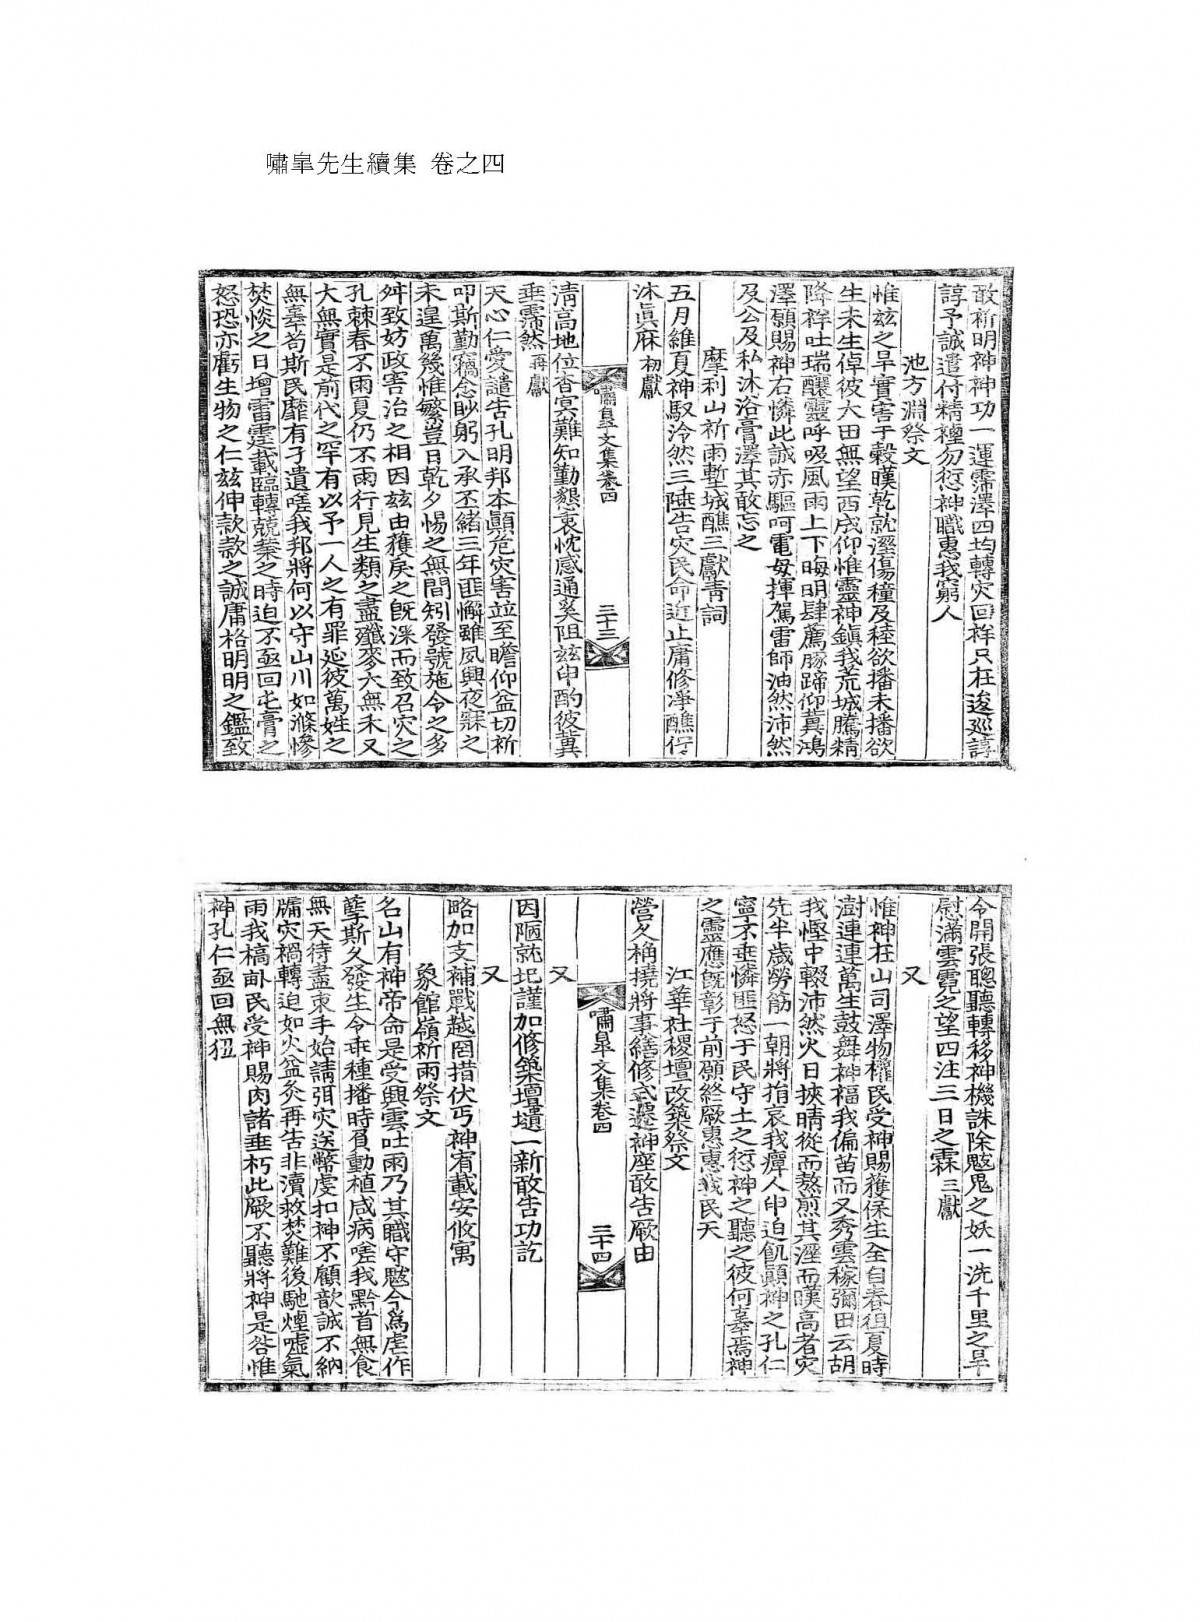 嘯皐先生續集 卷之四
敢祈明神神功一運霈澤四均轉灾回祥只在逡巡諄
諄予誠遣付精禋勿愆神職惠我窮人
池方淵祭文
惟玆之旱實害于穀暵乾就溼傷穜及稑欲播未播欲
生未生倬彼大田無望西成仰惟靈神鎭我荒城騰精
降祥吐瑞釀靈呼吸風雨上下晦明肆薦豚蹄仰冀鴻
澤願賜神右憐此誠赤驅呵電母揮駕雷師油然沛然
及公及私沐浴膏澤其敢忘之
摩利山祈雨塹城醮三獻靑詞
五月維夏神馭泠然三陲告灾民命近止庸修凈醮佇
沐眞庥初獻
嘯皐文集卷四
三十三
淸高地位杳冥難知勤懇衷忱感通奚阻玆申酌彼冀
垂霈然再獻
天心仁愛譴告孔明邦本顚危灾害並至瞻仰益切祈
叩斯勤竊念眇躬入承丕緖三年匪懈雖夙興夜寐之
未遑萬幾惟繁豈日乾夕惕之無間矧發號施令之多
舛致妨政害治之相因玆由獲戾之旣深而致召灾之
孔棘春不雨夏仍不雨行見生類之盡殲麥大無禾又
大無實是前代之罕有以予一人之有罪延彼萬姓之
無辜苟斯民靡有孑遺嗟我邦將何以守山川如滌慘
焚惔之日增雷霆載臨轉兢業之時迫不亟回屯膏之
怒恐亦虧生物之仁玆伸款款之誠庸格明明之鑑致
令開張聰聽轉移神機誅除魃鬼之妖一洗千里之旱
慰滿雲霓之望四注三日之霖三獻
又
惟神在山司澤物權民受神賜獲保生全自春徂夏時
澍連連萬生鼓舞神福我偏苗而又秀雲稼彌田云胡
我慳中輟沛然火日挾晴從而熬煎其溼而暵高者灾
先半歲勞筋一朝將捐哀我癉人申迫飢顚神之孔仁
寧不垂憐匪怒于民守土之愆神之聽之彼何辜焉神
之靈應旣彰于前願終厥惠惠我民天
江華社稷壇改築祭文
營久桷撓將事繕修式遷神座敢告厥由
嘯皐文集卷四
三十四
又
因陋就圮謹加修築壇壝一新敢告功訖
又
略加支補戰越罔措伏丐神宥載安攸寓
象館嶺祈雨祭文
名山有神帝命是受興雲吐雨乃其職守魃今爲虐作
孼斯久發生令乖種播時負動植咸病嗟我黔首無食
無天待盡束手始請弭灾送幣虔扣神不顧歆誠不納
牖灾禍轉迫如火益灸再告非瀆救焚難後馳煙噓氣
雨我槁畝民受神賜肉諸垂朽此厥不聽將神是咎惟
神孔仁亟回無狃